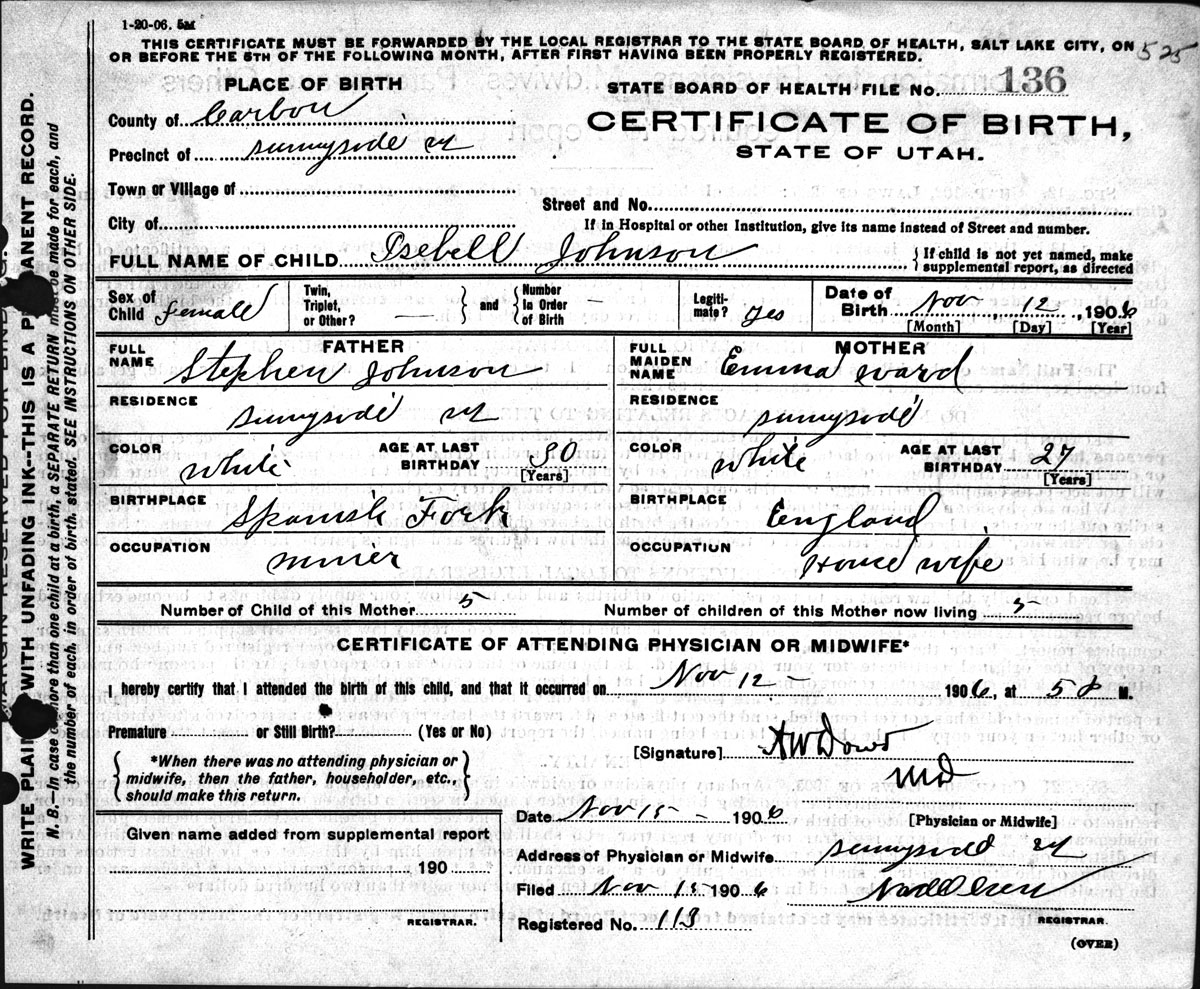 1-20-06. 5M
THIS CERTIFICATE MUST BE FORWARDED BY THE LOCAL REGISTRAR TO THE STATE BOARD OF HEALTH, SALT LAKE CITY, ON
OR BEFORE THE 5TH OF THE FOLLOWING MONTH, AFTER FIRST HAVING BEEN PROPERLY REGISTERED.
525
PLACE OF BIRTH
STATE BOARD OF HEALTH FILE No. 136
County of Carbon
CERTIFICATE OF BIRTH,
Precinct of Sunnyside ut
STATE OF UTAH.
Town or Village of
Street and No.
City of
If in Hospital or other Institution, give its name instead of Street and number.
FULL NAME OF CHILD Isebell Johnson
{ If child is not yet named, make
supplemental report, as directed
Sex of Child Female
Twin, Triplet, or Other? — } and { Number in Order of Birth —
Legitimate? yes
Date of Birth Nov 12, 1906
[Month] [Day] [Year]
FATHER
FULL NAME Stephen Johnson
RESIDENCE Sunnyside ut
COLOR White
AGE AT LAST BIRTHDAY 30
[Years]
BIRTHPLACE Spanish Fork
OCCUPATION miner
MOTHER
FULL MAIDEN NAME Emma Ward
RESIDENCE Sunnyside
COLOR White
AGE AT LAST BIRTHDAY 27
[Years]
BIRTHPLACE England
OCCUPATION House wife
Number of Child of this Mother 5
Number of children of this Mother now living 5
CERTIFICATE OF ATTENDING PHYSICIAN OR MIDWIFE*
I hereby certify that I attended the birth of this child, and that it occurred on Nov 12 - 1906, at 5 M.
Premature or Still Birth? (Yes or No)
{ *When there was no attending physician or
midwife, then the father, householder, etc.,
should make this return. }
[Signature]
MD
Date Nov 15 - 1906
[Physician or Midwife]
Address of Physician or Midwife Sunnyside ut
Filed Nov 15 - 1906
Registered No. 113
REGISTRAR.
Given name added from supplemental report
190
REGISTRAR.
(OVER)
MARGIN RESERVED FOR BINDING.
WRITE PLAINLY WITH UNFADING INK--THIS IS A PERMANENT RECORD.
N. B.—In case of more than one child at a birth, a SEPARATE RETURN must be made for each, and
the number of each, in order of birth, stated. SEE INSTRUCTIONS ON OTHER SIDE.